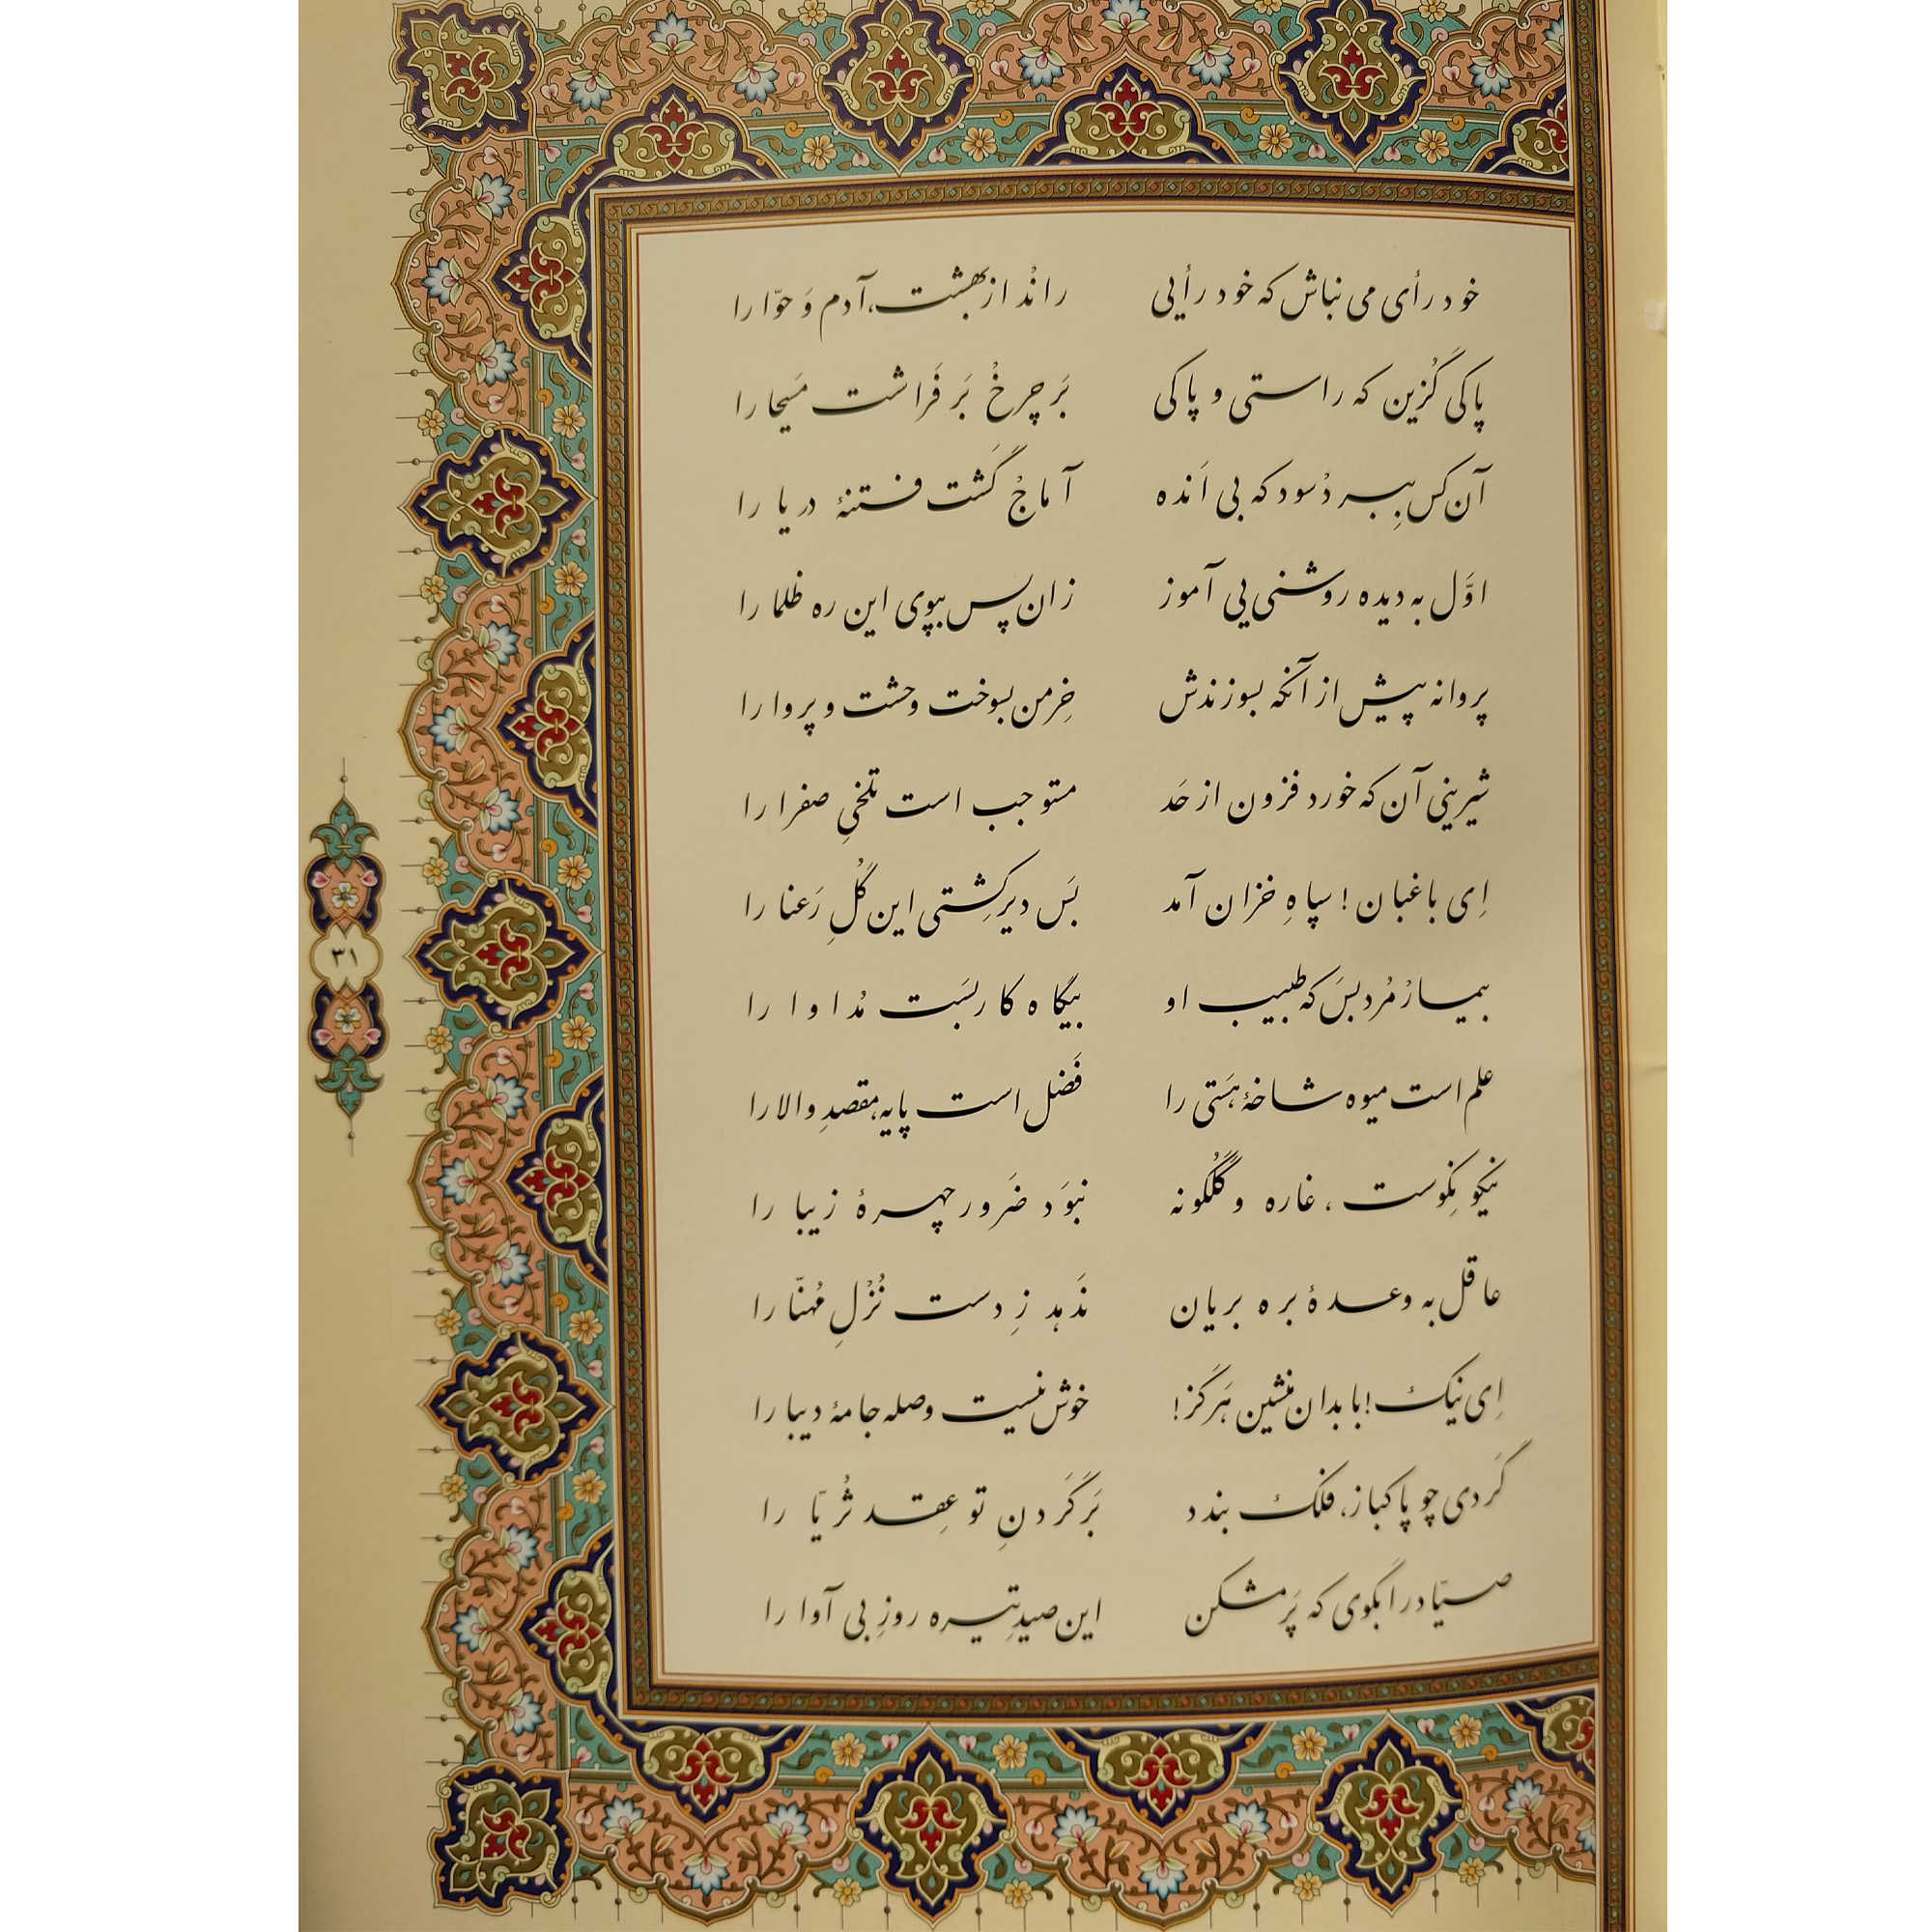 خود رأی می نباش که خود رأیی رانْد از بهشت، آدم وَ حوّا را
پاکی گُزین که راستی و پاکی بَر چرخْ بَر فَراشت مَسیحا را
آن کس بِبرد سود که بی اَنده آماجْ گَشت فتنهٔ دریا را
اوَّل به دیده روشنی یی آموز زان پس بپوی این ره ظلما را
پروانه پیش از آنکه بسوزندش خِرمن بسوخت وحشت و پروا را
شیرینی آن که خورد فزون از حَد مستوجب است تلخیِ صفرا را
اِی باغبان! سپاهِ خزان آمد بَس دیر کِشتی این گُلِ رَعنا را
بیمارْ مُرد بسَ که طبیب او بیگاه کار بسَت مُداوا را
علم است میوه شاخهٔ هَستی را فَضل است پایه، مقصدِ والا را
نیکو نِکوست، غازه و گُلگونه نبوَد ضَرور چهرهٔ زیبا را
عاقل به وعدهٔ بره بریان نَدهد زِ دست نُزْلِ مُهنّا را
اِی نیک! با بدان منشین هَرگز! خوش نیست وصله جامهٔ دیبا را
گردی چو پاکباز، فلک بندد بَر گَردنِ تو عِقد ثُریّا را
صیّاد را بگوی که پَر مشکن این صیدِ تیره روزِ بی آوا را
۳۱